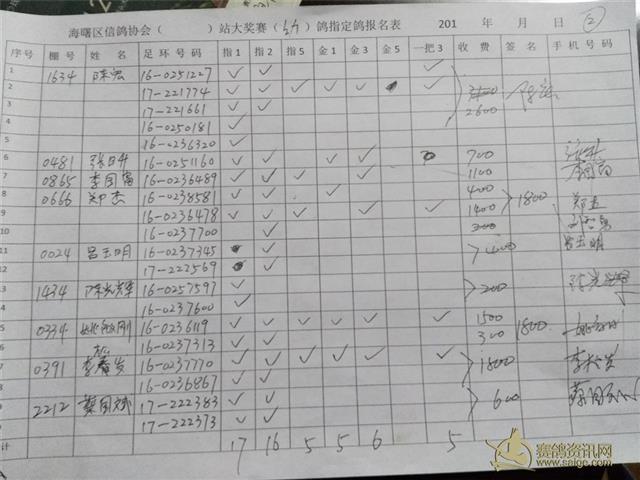 海曙区信鸽协会( )站大奖赛( )鸽指定鸽报名表 201 年 月 日 ②
序号 棚号 姓名 足环号码 指1 指2 指5 金1 金3 金5 一把3 收费 签名 手机号码
1 1634 陈宏 16-0251227 ✓ ✓ ✓
2 17-221774 ✓ ✓ ✓ ✓ ✓ ✓
3 17-221661 ✓ ✓ 2600
4 16-0250181 ✓
5 16-0236320 ✓
6 0481 张日升 16-0251160 ✓ ✓ ✓ ✓ 700
7 0865 李国富 16-0236489 ✓ ✓ ✓ ✓ 1100
8 0666 郑杰 16-0238581 ✓ ✓ ✓ ✓ 400 1800
9 16-0236478 ✓ ✓ ✓ ✓ ✓ 1400 郑杰
16-0237700 ✓
11 0024 吕玉明 16-0237345 ✓ 400 吕玉明
12 17-222569 ✓
13 1434 陈光辉 16-0257597 ✓ 200
16-0237600 ✓
0334 16-0236119 ✓ ✓ ✓ ✓ ✓ ✓ 1500 1800
16-0237313 ✓ ✓ 300
0391 16-0237770 ✓ ✓ ✓ ✓ ✓ ✓ 1800
16-0236867 ✓ ✓
2212 蔡国斌 17-222383 ✓ ✓ 600
17-222373 ✓ ✓
计 17 16 5 5 6 5
赛鸽资讯网
www.saige.com